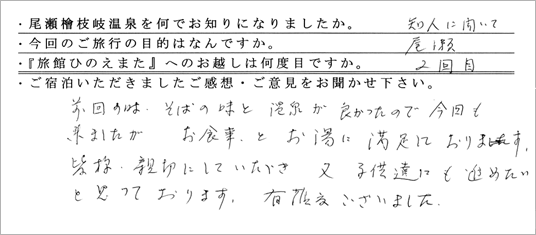 ・尾瀬檜枝岐温泉を何でお知りになりましたか。 知人に聞いて
・今回のご旅行の目的はなんですか。 尾瀬
・『旅館ひのえまた』へのお越しは何度目ですか。 2回目
・ご宿泊いただきましたご感想・ご意見をお聞かせ下さい。
前回のは、そばの味と温泉が良かったので今回も
来ましたが お食事、とお湯に満足しております。
皆様、親切にしていただき 又 子供達にも進めたい
と思っております。有難うございました。